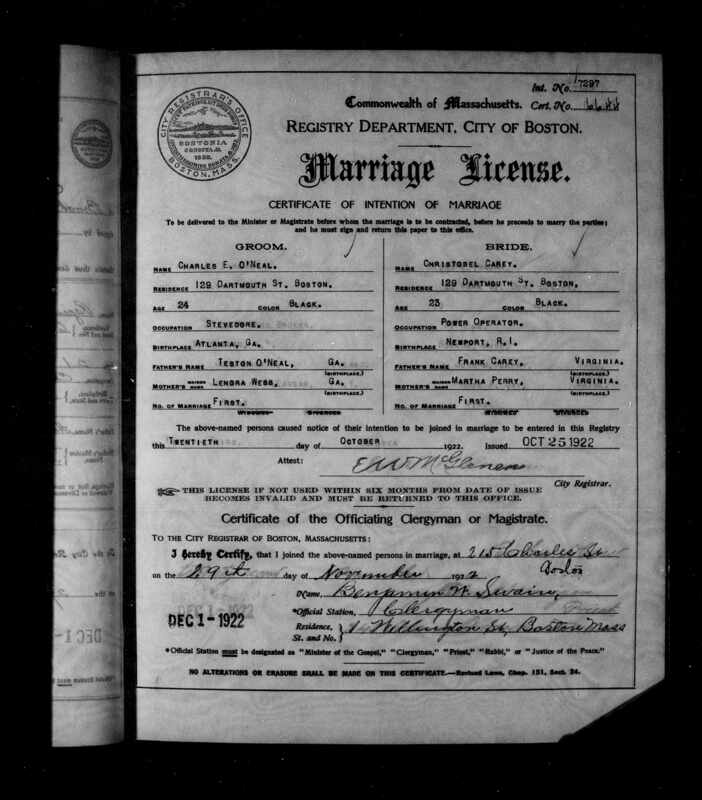 Int. No. 7297
Commonwealth of Massachusetts. Cert. No. 6644
CITY REGISTRAR'S OFFICE
BOSTONIA
CONDITA A.D.
1630.
BOSTON, MASS.
REGISTRY DEPARTMENT, CITY OF BOSTON.
Marriage License.
CERTIFICATE OF INTENTION OF MARRIAGE
To be delivered to the Minister or Magistrate before whom the marriage is to be contracted, before he proceeds to marry the parties;
and he must sign and return this paper to this office.
GROOM.
NAME CHARLES E. O'NEAL.
RESIDENCE 129 DARTMOUTH ST. BOSTON.
AGE 24 COLOR BLACK.
OCCUPATION STEVEDORE.
BIRTHPLACE ATLANTA, GA.
FATHER'S NAME TESTON O'NEAL, GA.
(BIRTHPLACE.)
MOTHER'S MAIDEN NAME LENORA WEBB, GA.
(BIRTHPLACE.)
NO. OF MARRIAGE FIRST.
WIDOWED DIVORCED
BRIDE.
NAME CHRISTOBEL CAREY.
RESIDENCE 129 DARTMOUTH ST. BOSTON.
AGE 23 COLOR BLACK.
OCCUPATION POWER OPERATOR.
BIRTHPLACE NEWPORT, R.I.
FATHER'S NAME FRANK CAREY, VIRGINIA.
(BIRTHPLACE.)
MOTHER'S MAIDEN NAME MARTHA PERRY, VIRGINIA.
(BIRTHPLACE.)
NO. OF MARRIAGE FIRST.
WIDOWED DIVORCED
The above-named persons caused notice of their intention to be joined in marriage to be entered in this Registry
this TWENTIETH day of OCTOBER 1922. Issued OCT 25 1922
Attest: E W McGlenen
City Registrar.
THIS LICENSE IF NOT USED WITHIN SIX MONTHS FROM DATE OF ISSUE
BECOMES INVALID AND MUST BE RETURNED TO THIS OFFICE.
Certificate of the Officiating Clergyman or Magistrate.
TO THE CITY REGISTRAR OF BOSTON, MASSACHUSETTS:
I hereby Certify, that I joined the above-named persons in marriage, at 215 Charles St
on the 29th day of November 1922 Boston
Name, Benjamin W. Swain,
*Official Station, Clergyman
DEC 1 - 1922
Residence, St. and No. 1 Wellington St, Boston Mass
*Official Station must be designated as "Minister of the Gospel," "Clergyman," "Priest," "Rabbi," or "Justice of the Peace."
NO ALTERATIONS OR ERASURE SHALL BE MADE ON THIS CERTIFICATE.—Revised Laws, Chap. 151, Sect. 24.